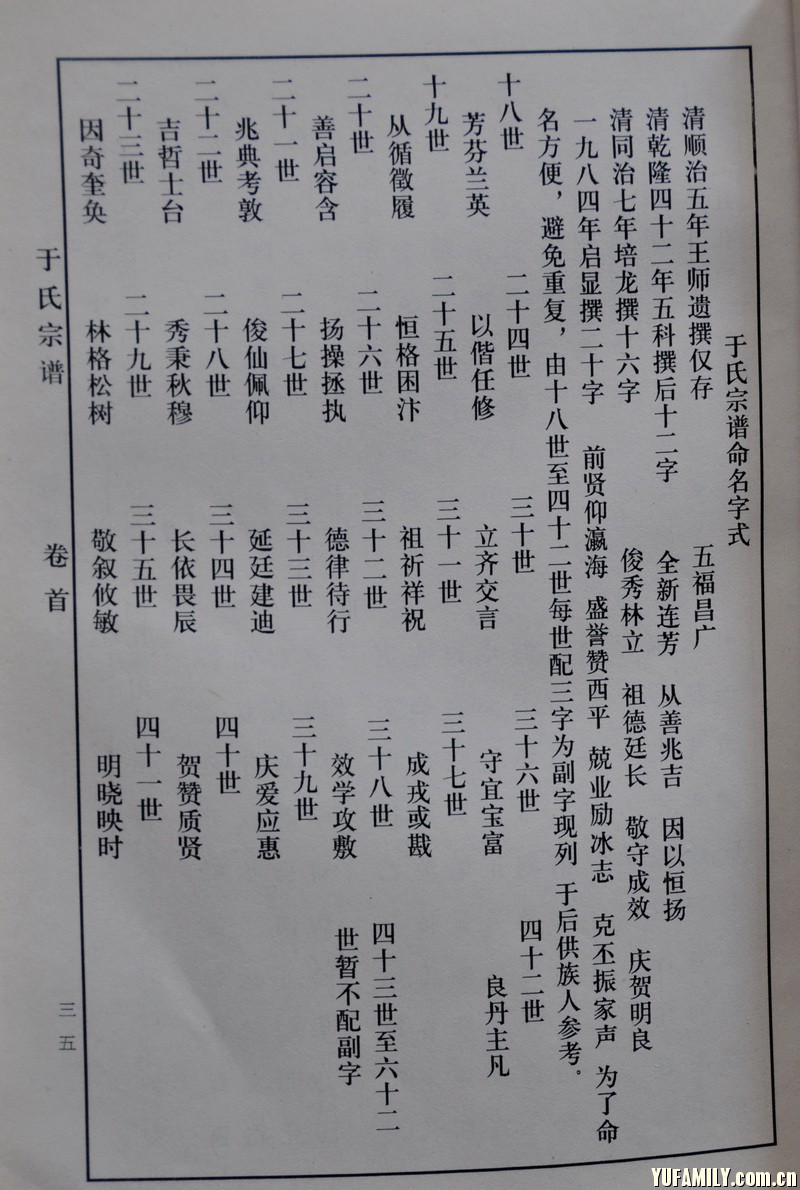 于氏宗谱命名字式
清顺治五年王师遗撰仅存 五福昌广
清乾隆四十二年五科撰后十二字 全新连芳 从善兆吉 因以恒扬
清同治七年培龙撰十六字 俊秀林立 祖德廷长 敬守成效 庆贺明良
一九八四年启显撰二十字 前贤仰瀛海 盛誉赞西平 兢业励冰志 克丕振家声 为了命
名方便，避免重复，由十八世至四十二世每世配三字为副字现列 于后供族人参考。
十八世
芳芬兰英
十九世
从循徵履
二十世
善启容含
二十一世
兆典考敦
二十二世
吉哲士台
二十三世
因奇奎奂
二十四世
以偕任修
二十五世
恒格困汴
二十六世
扬操拯执
二十七世
俊仙佩仰
二十八世
秀秉秋穆
二十九世
林格松树
三十世
立齐交言
三十一世
祖祈祥祝
三十二世
德律待行
三十三世
延廷建迪
三十四世
长依畏辰
三十五世
敬叙攸敏
三十六世
守宜宝富
三十七世
成戎或戡
三十八世
效学攻敷
三十九世
庆爱应惠
四十世
贺赞质贤
四十一世
明晓映时
四十二世
良丹主凡
四十三世至六十二
世暂不配副字
于氏宗谱
卷首
三五
YUFAMILY.com.cn